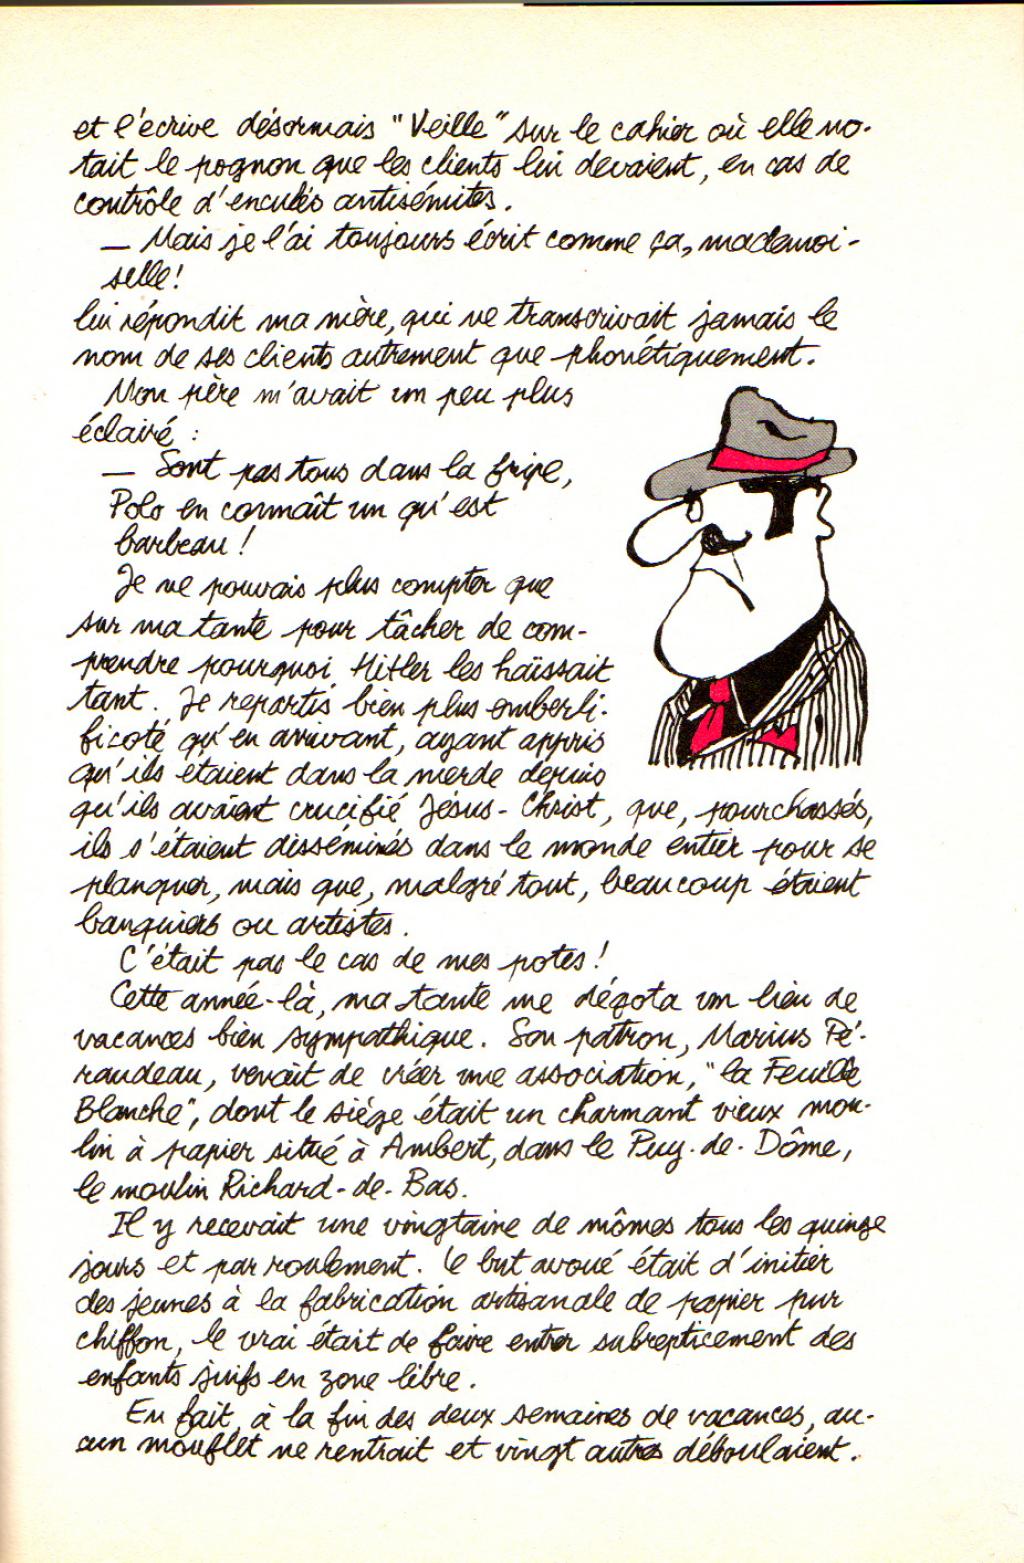 et l'écrive désormais "Veille" sur le cahier où elle no-
tait le pognon que les clients lui devaient, en cas de
contrôle d'enculés antisémites.
— Mais je l'ai toujours écrit comme ça, mademoi-
selle!
lui répondit ma mère, qui ne transcrivait jamais le
nom de ses clients autrement que phonétiquement.
Mon père m'avait un peu plus
éclairé :
— Sont pas tous dans la fripe,
Polo en connaît un qu'est
barbeau !
Je ne pouvais plus compter que
sur ma tante pour tâcher de com-
prendre pourquoi Hitler les haïssait
tant. Je repartis bien plus emberli-
ficoté qu'en arrivant, ayant appris
qu'ils étaient dans la merde depuis
qu'ils avaient crucifié Jésus-Christ, que, pourchassés,
ils s'étaient disséminés dans le monde entier pour se
planquer, mais que, malgré tout, beaucoup étaient
banquiers ou artistes.
C'était pas le cas de mes potes !
Cette année-là, ma tante me dégota un lieu de
vacances bien sympathique. Son patron, Marius Pé-
raudeau, venait de créer une association, "la Feuille
Blanche", dont le siège était un charmant vieux mou-
lin à papier situé à Ambert, dans le Puy-de-Dôme,
le moulin Richard-de-Bas.
Il y recevait une vingtaine de mômes tous les quinze
jours et par roulement. Le but avoué était d'initier
des jeunes à la fabrication artisanale de papier pur
chiffon, le vrai était de faire entrer subrepticement des
enfants juifs en zone libre.
En fait, à la fin des deux semaines de vacances, au-
cun mouflet ne rentrait et vingt autres déboulaient.